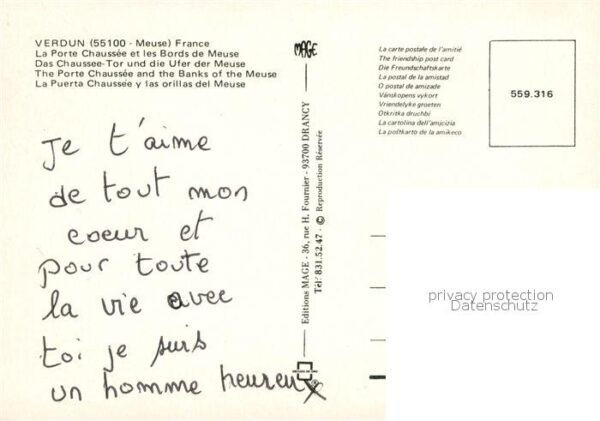 VERDUN (55100 - Meuse) France
La Porte Chaussée et les Bords de Meuse
Das Chaussee-Tor und die Ufer der Meuse
The Porte Chaussée and the Banks of the Meuse
La Puerta Chaussée y las orillas del Meuse
Je t'aime
de tout mon
coeur et
pour toute
la vie avec
toi je suis
un homme heureux
MAGE
Editions MAGE - 36, rue H. Fournier - 93700 DRANCY
Tél: 831.52.47 - © Reproduction Réservée
La carte postale de l'amitié
The friendship post card
Die Freundschaftskarte
La postal de la amistad
O postal de amizade
Vänskopens vykort
Vriendelyke groeten
Otkritka druchbi
La cartolina dell'amjcizia
La poŝtkarto de la amikeco
559.316
privacy protection
Datenschutz